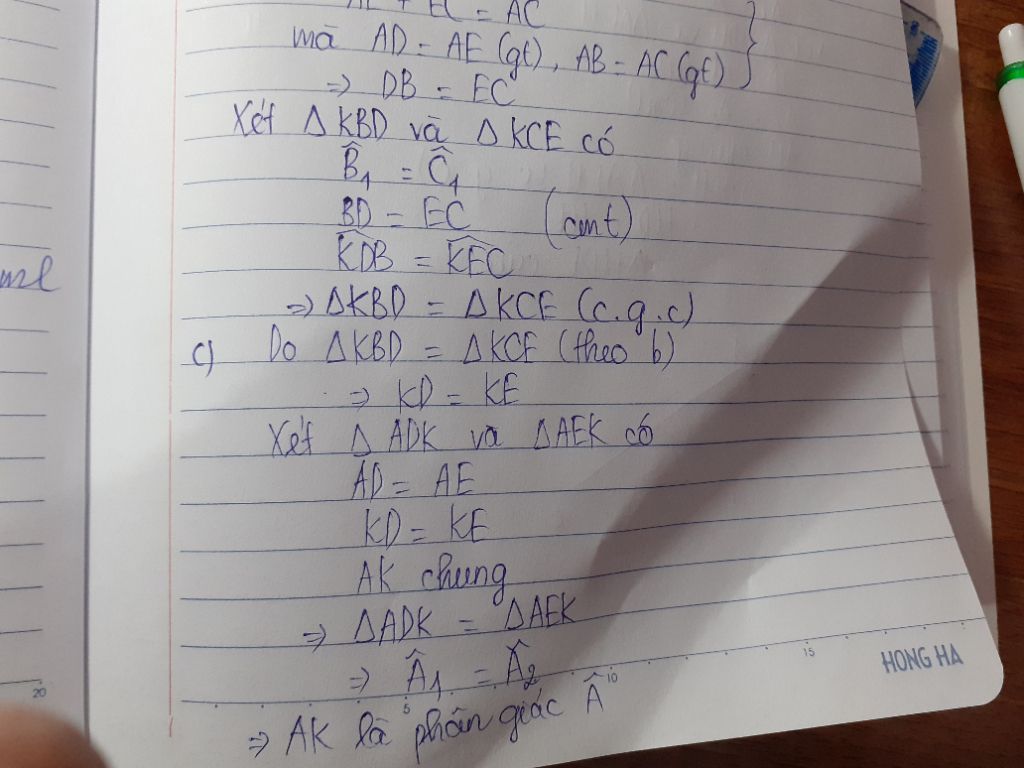 + EC = AC
mà AD = AE (gt), AB = AC (gt) }
=> DB = EC
Xét Δ KBD và Δ KCE có
B̂₁ = Ĉ₁
BD = EC (cmt)
K̂DB = K̂EC
=> ΔKBD = ΔKCE (c.g.c)
c) Do ΔKBD = ΔKCE (theo b)
=> KD = KE
Xét Δ ADK va ΔAEK có
AD = AE
KD = KE
AK chung
=> ΔADK = ΔAEK
=> Â₁ = Â₂
=> AK là phân giác Â
5 10 15
HONG HA
20